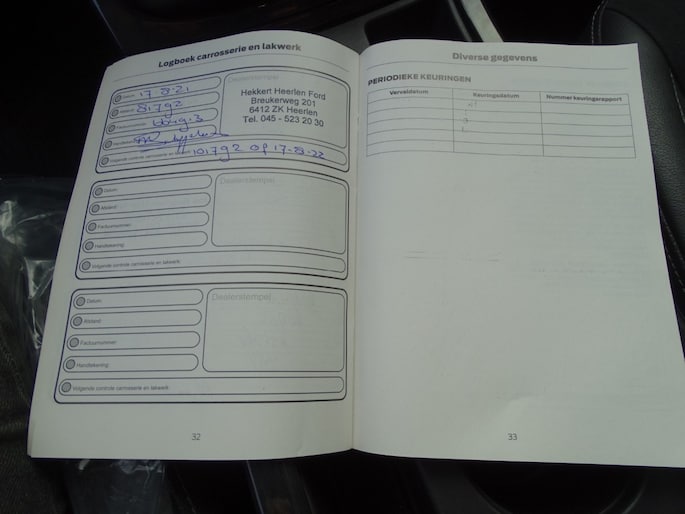 Logboek carrosserie en lakwerk
Datum: 17.8.21
Afstand: 81792
Factuurnummer:
Handtekening:
Volgende controle carrosserie en lakwerk: 101792 op 17-8-22
Dealerstempel
Hekkert Heerlen Ford
Breukerweg 201
6412 ZK Heerlen
Tel. 045 - 523 20 30
Datum:
Afstand:
Factuurnummer:
Handtekening:
Volgende controle carrosserie en lakwerk:
Dealerstempel
Datum:
Afstand:
Factuurnummer:
Handtekening:
Volgende controle carrosserie en lakwerk:
Dealerstempel
32
Diverse gegevens
PERIODIEKE KEURINGEN
Vervaldatum Keuringsdatum Nummer keuringsrapport
33